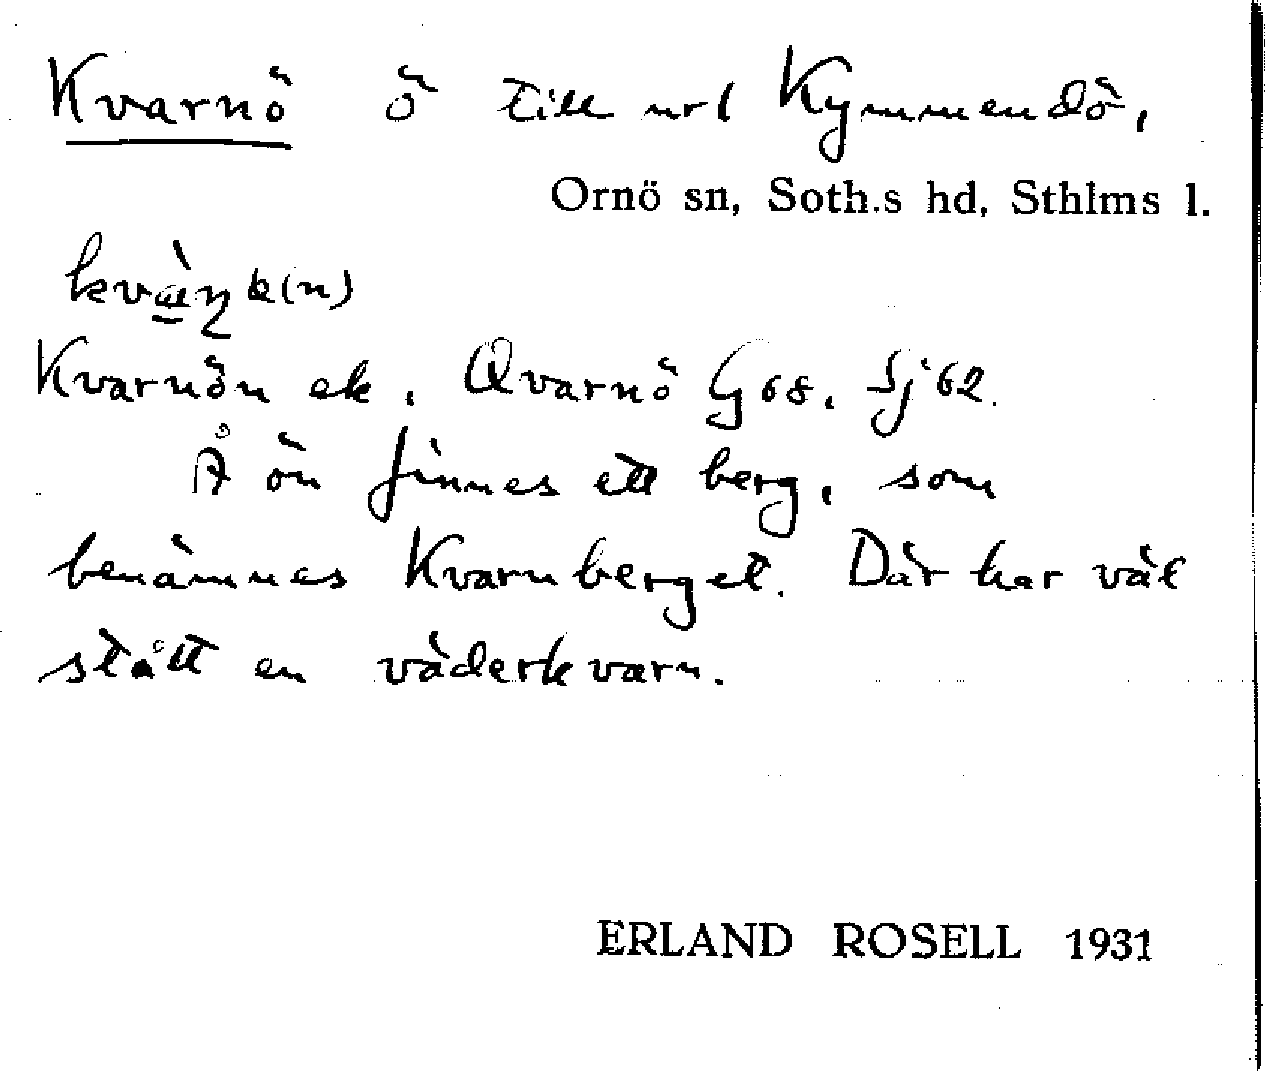 Kvarnö ö till nr 1 Kymmendö,
Ornö sn, Soth.s hd, Sthlms l.
Kvarnön ek. Qvarnö G 68. Sj 62.
Å ön finnes ett berg, som
benämnes Kvarnberget. Där har väl
stått en väderkvarn.
ERLAND ROSELL 1931